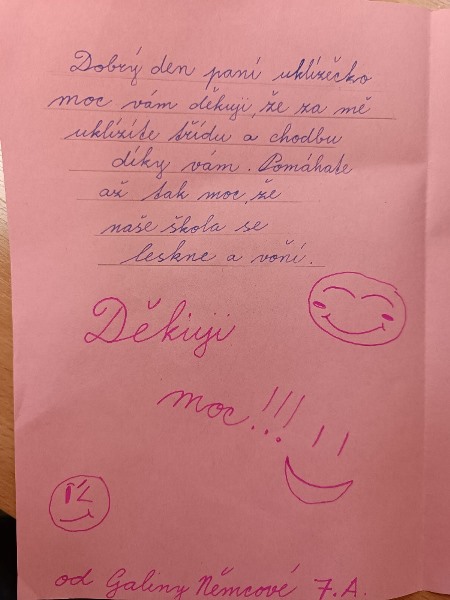 Dobrý den paní uklízěčko
moc vám děkuji, že za mě
uklízíte třídu a chodbu
díky vám. Pomáháte
až tak moc, že
naše škola se
leskne a voní.
Děkuji
moc!!!
od Galiny Němcové 7.A.